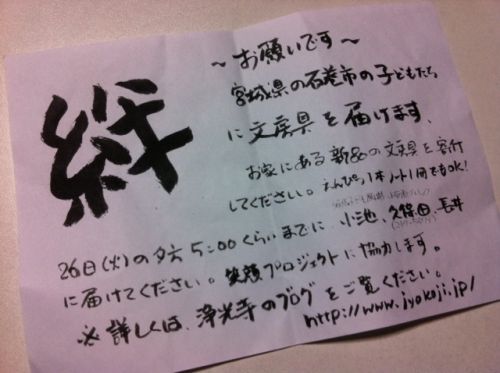 絆
～お願いです～
宮城県の石巻市の子どもたち
に文房具を届けます、
お家にある新品の文具を寄付
してください。えんぴつ1本ノート1冊でもOK!
26日(火)の夕方5:00くらいまでに、小池、久保田、長井
に届けてください。笑顔プロジェクトに協力します。
※詳しくは、浄光寺のブログをご覧ください。
http://www.jyokoji.jp/